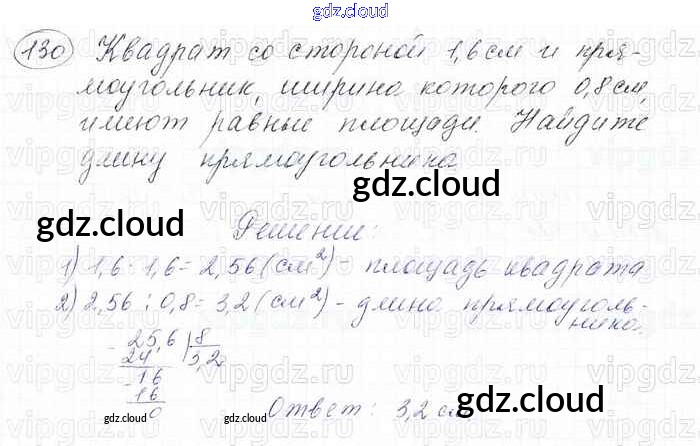 gdz.cloud
130 Квадрат со стороной 1,6 см и пря-
моугольник, ширина которого 0,8 см,
имеют равные площади. Найдите
длину прямоугольника.
gdz.cloud
gdz.cloud
Решение:
1) 1,6 · 1,6 = 2,56 (см²) - площадь квадрата
2) 2,56 : 0,8 = 3,2 (см²) - длина прямоуголь-
ника.
25,6 | 8
24 | 3,2
16
16
0
Ответ: 3,2 см.
gdz.cloud
gdz.cloud
gdz.cloud